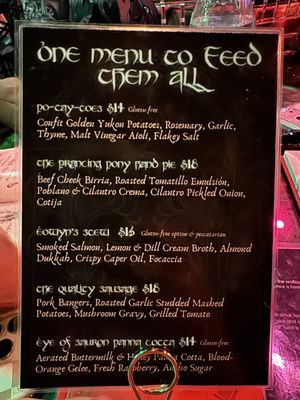 One Menu to Feed
Them All
Po-Tay-Toes $14 Gluten-free
Confit Golden Yukon Potatoes, Rosemary, Garlic,
Thyme, Malt Vinegar Aioli, Flakey Salt
The Prancing Pony Hand Pie $18
Beef Cheek Birria, Roasted Tomatillo Emulsión,
Poblano & Cilantro Crema, Cilantro Pickled Onion,
Cotija
Éowyn's Stew $16 Gluten-free option & pescatarian
Smoked Salmon, Lemon & Dill Cream Broth, Almond
Dukkah, Crispy Caper Oil, Focaccia
One Quality Sausage $18
Pork Bangers, Roasted Garlic Studded Mashed
Potatoes, Mushroom Gravy, Grilled Tomato
Eye of Sauron Panna Cotta $14 Gluten-free
Aerated Buttermilk & Honey Panna Cotta, Blood-
Orange Gelee, Fresh Raspberry, Ancho Sugar